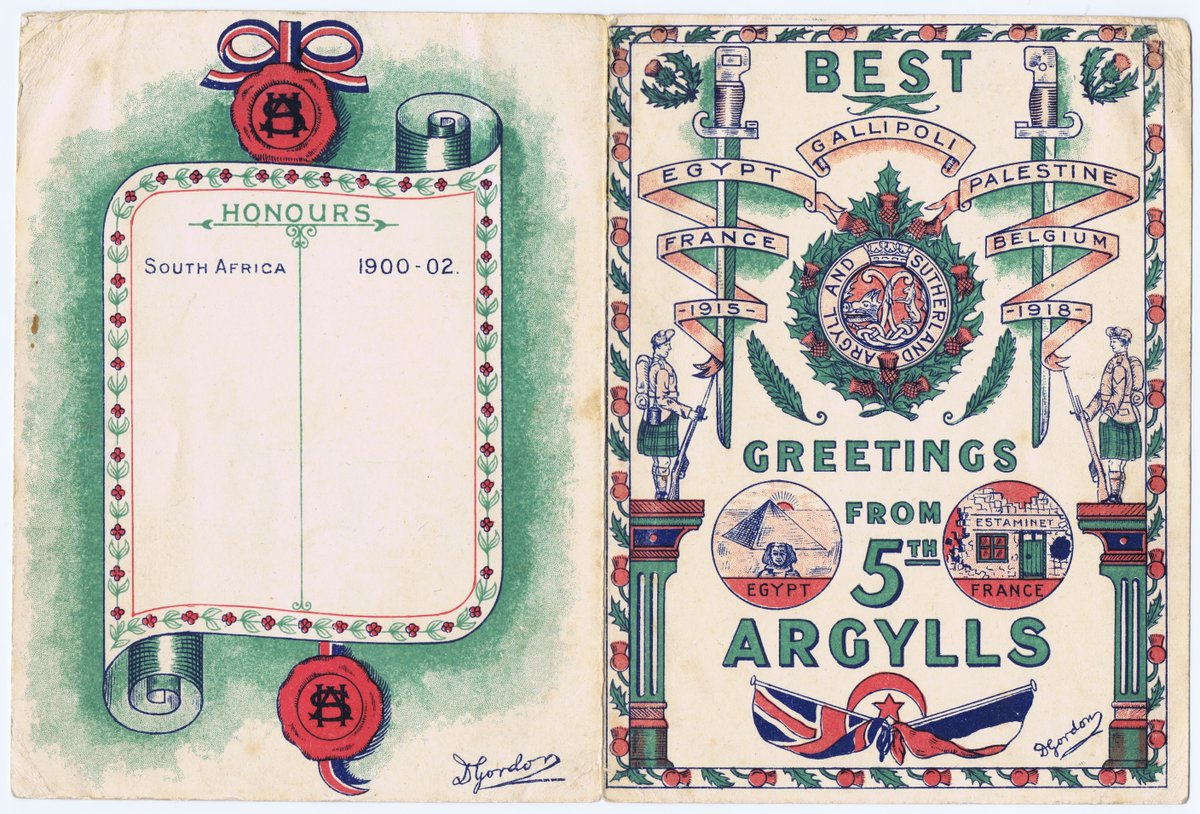 HONOURS
SOUTH AFRICA 1900-02.
D Gordon
BEST
GALLIPOLI
EGYPT
PALESTINE
FRANCE
BELGIUM
-1915-
-1918-
ARGYLL AND SUTHERLAND
GREETINGS
FROM
5TH
ARGYLLS
EGYPT
ESTAMINET
FRANCE
D Gordon